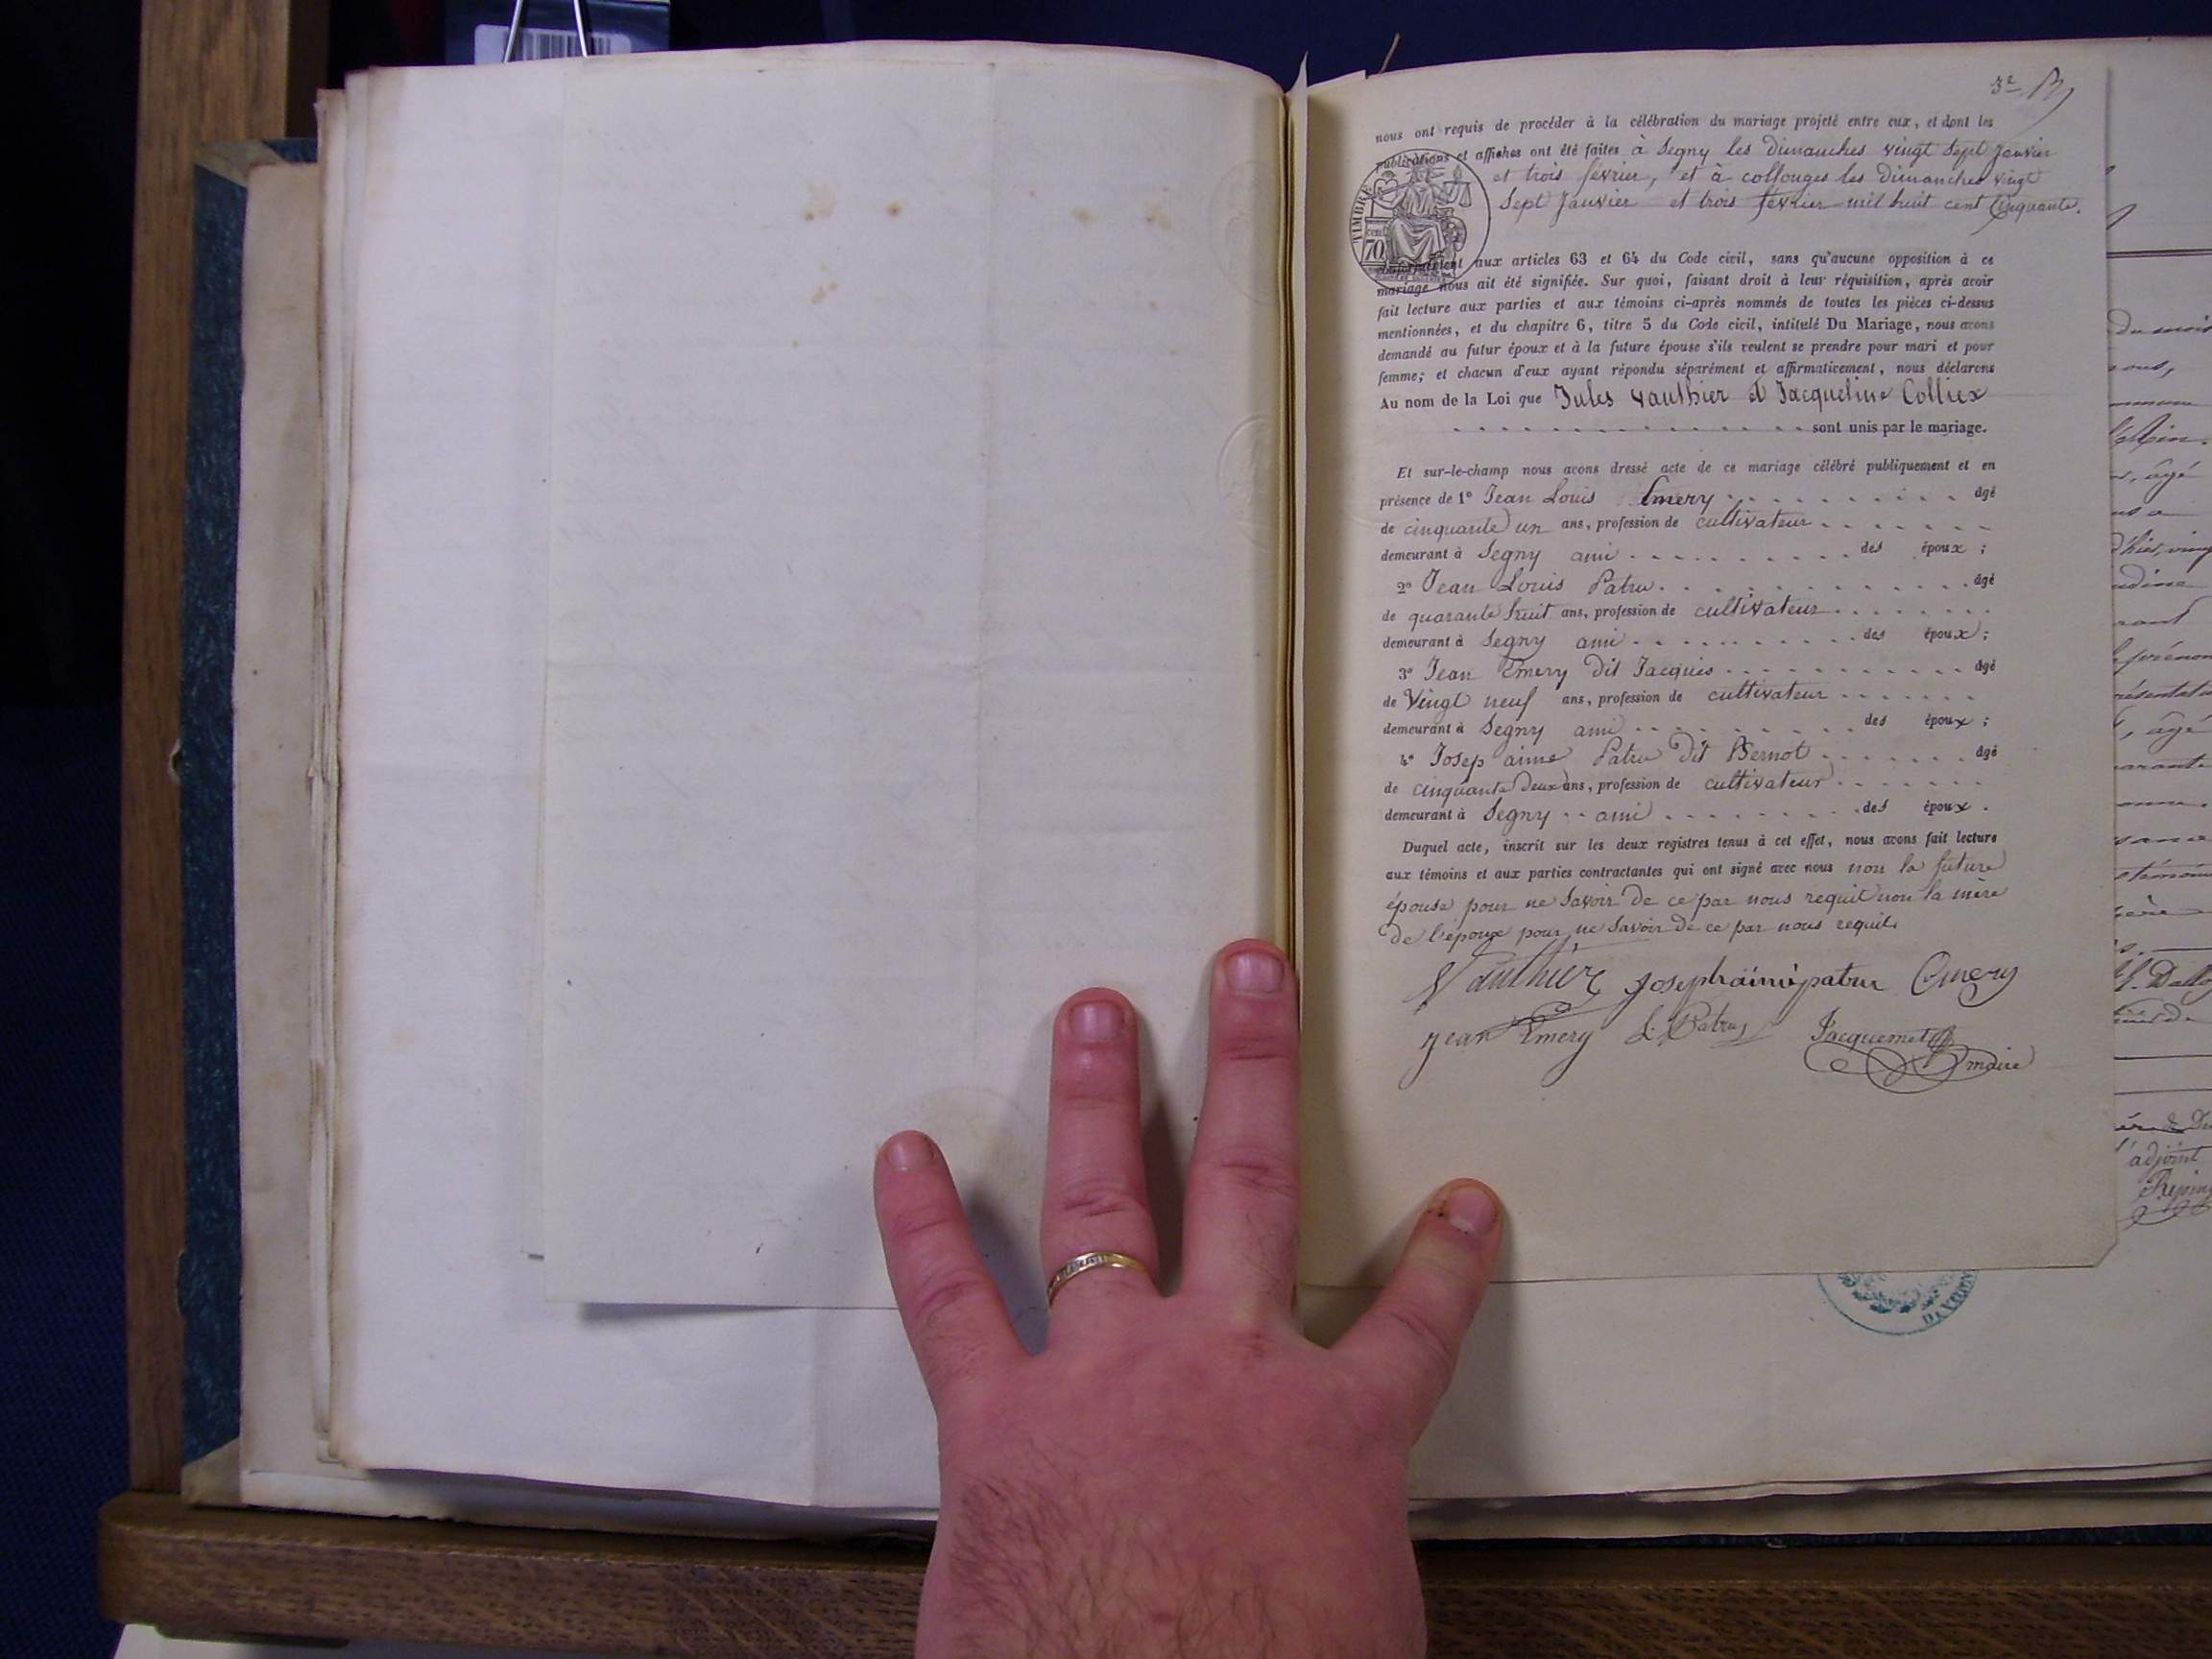 3e
nous ont requis de procéder à la célébration du mariage projeté entre eux, et dont les
publications et affiches ont été faites à Segny les dimanches vingt sept janvier
et trois février, et à collonges les dimanches vingt
sept Janvier et trois février mil huit cent cinquante.
TIMBRE
70
conformément aux articles 63 et 64 du Code civil, sans qu'aucune opposition à ce
mariage nous ait été signifiée. Sur quoi, faisant droit à leur réquisition, après avoir
fait lecture aux parties et aux témoins ci-après nommés de toutes les pièces ci-dessus
mentionnées, et du chapitre 6, titre 5 du Code civil, intitulé Du Mariage, nous avons
demandé au futur époux et à la future épouse s'ils veulent se prendre pour mari et pour
femme; et chacun d'eux ayant répondu séparément et affirmativement, nous déclarons
Au nom de la Loi que Jules Vauthier et Jacqueline Colliex
sont unis par le mariage.
Et sur-le-champ nous avons dressé acte de ce mariage célébré publiquement et en
présence de 1° Jean Louis Emery âgé
de cinquante un ans, profession de cultivateur
demeurant à Segny ami des époux ;
2° Jean Louis Patru âgé
de quarante huit ans, profession de cultivateur
demeurant à Segny ami des époux ;
3° Jean Emery dit Jacquis âgé
de Vingt neuf ans, profession de cultivateur
demeurant à Segny ami des époux ;
4° Josep aimé Patru dit Bernot âgé
de cinquante deux ans, profession de cultivateur
demeurant à Segny ami des époux .
Duquel acte, inscrit sur les deux registres tenus à cet effet, nous avons fait lecture
aux témoins et aux parties contractantes qui ont signé avec nous non la future
épouse pour ne savoir de ce par nous requit non la mère
de l'époux pour ne savoir de ce par nous requit.
Vauthier Josephaimépatru Emery
jean Emery L. Patru Jacquemet
maire
du mois
nous,
l'Ain.
âgé
prénom
âgé
l'adjoint